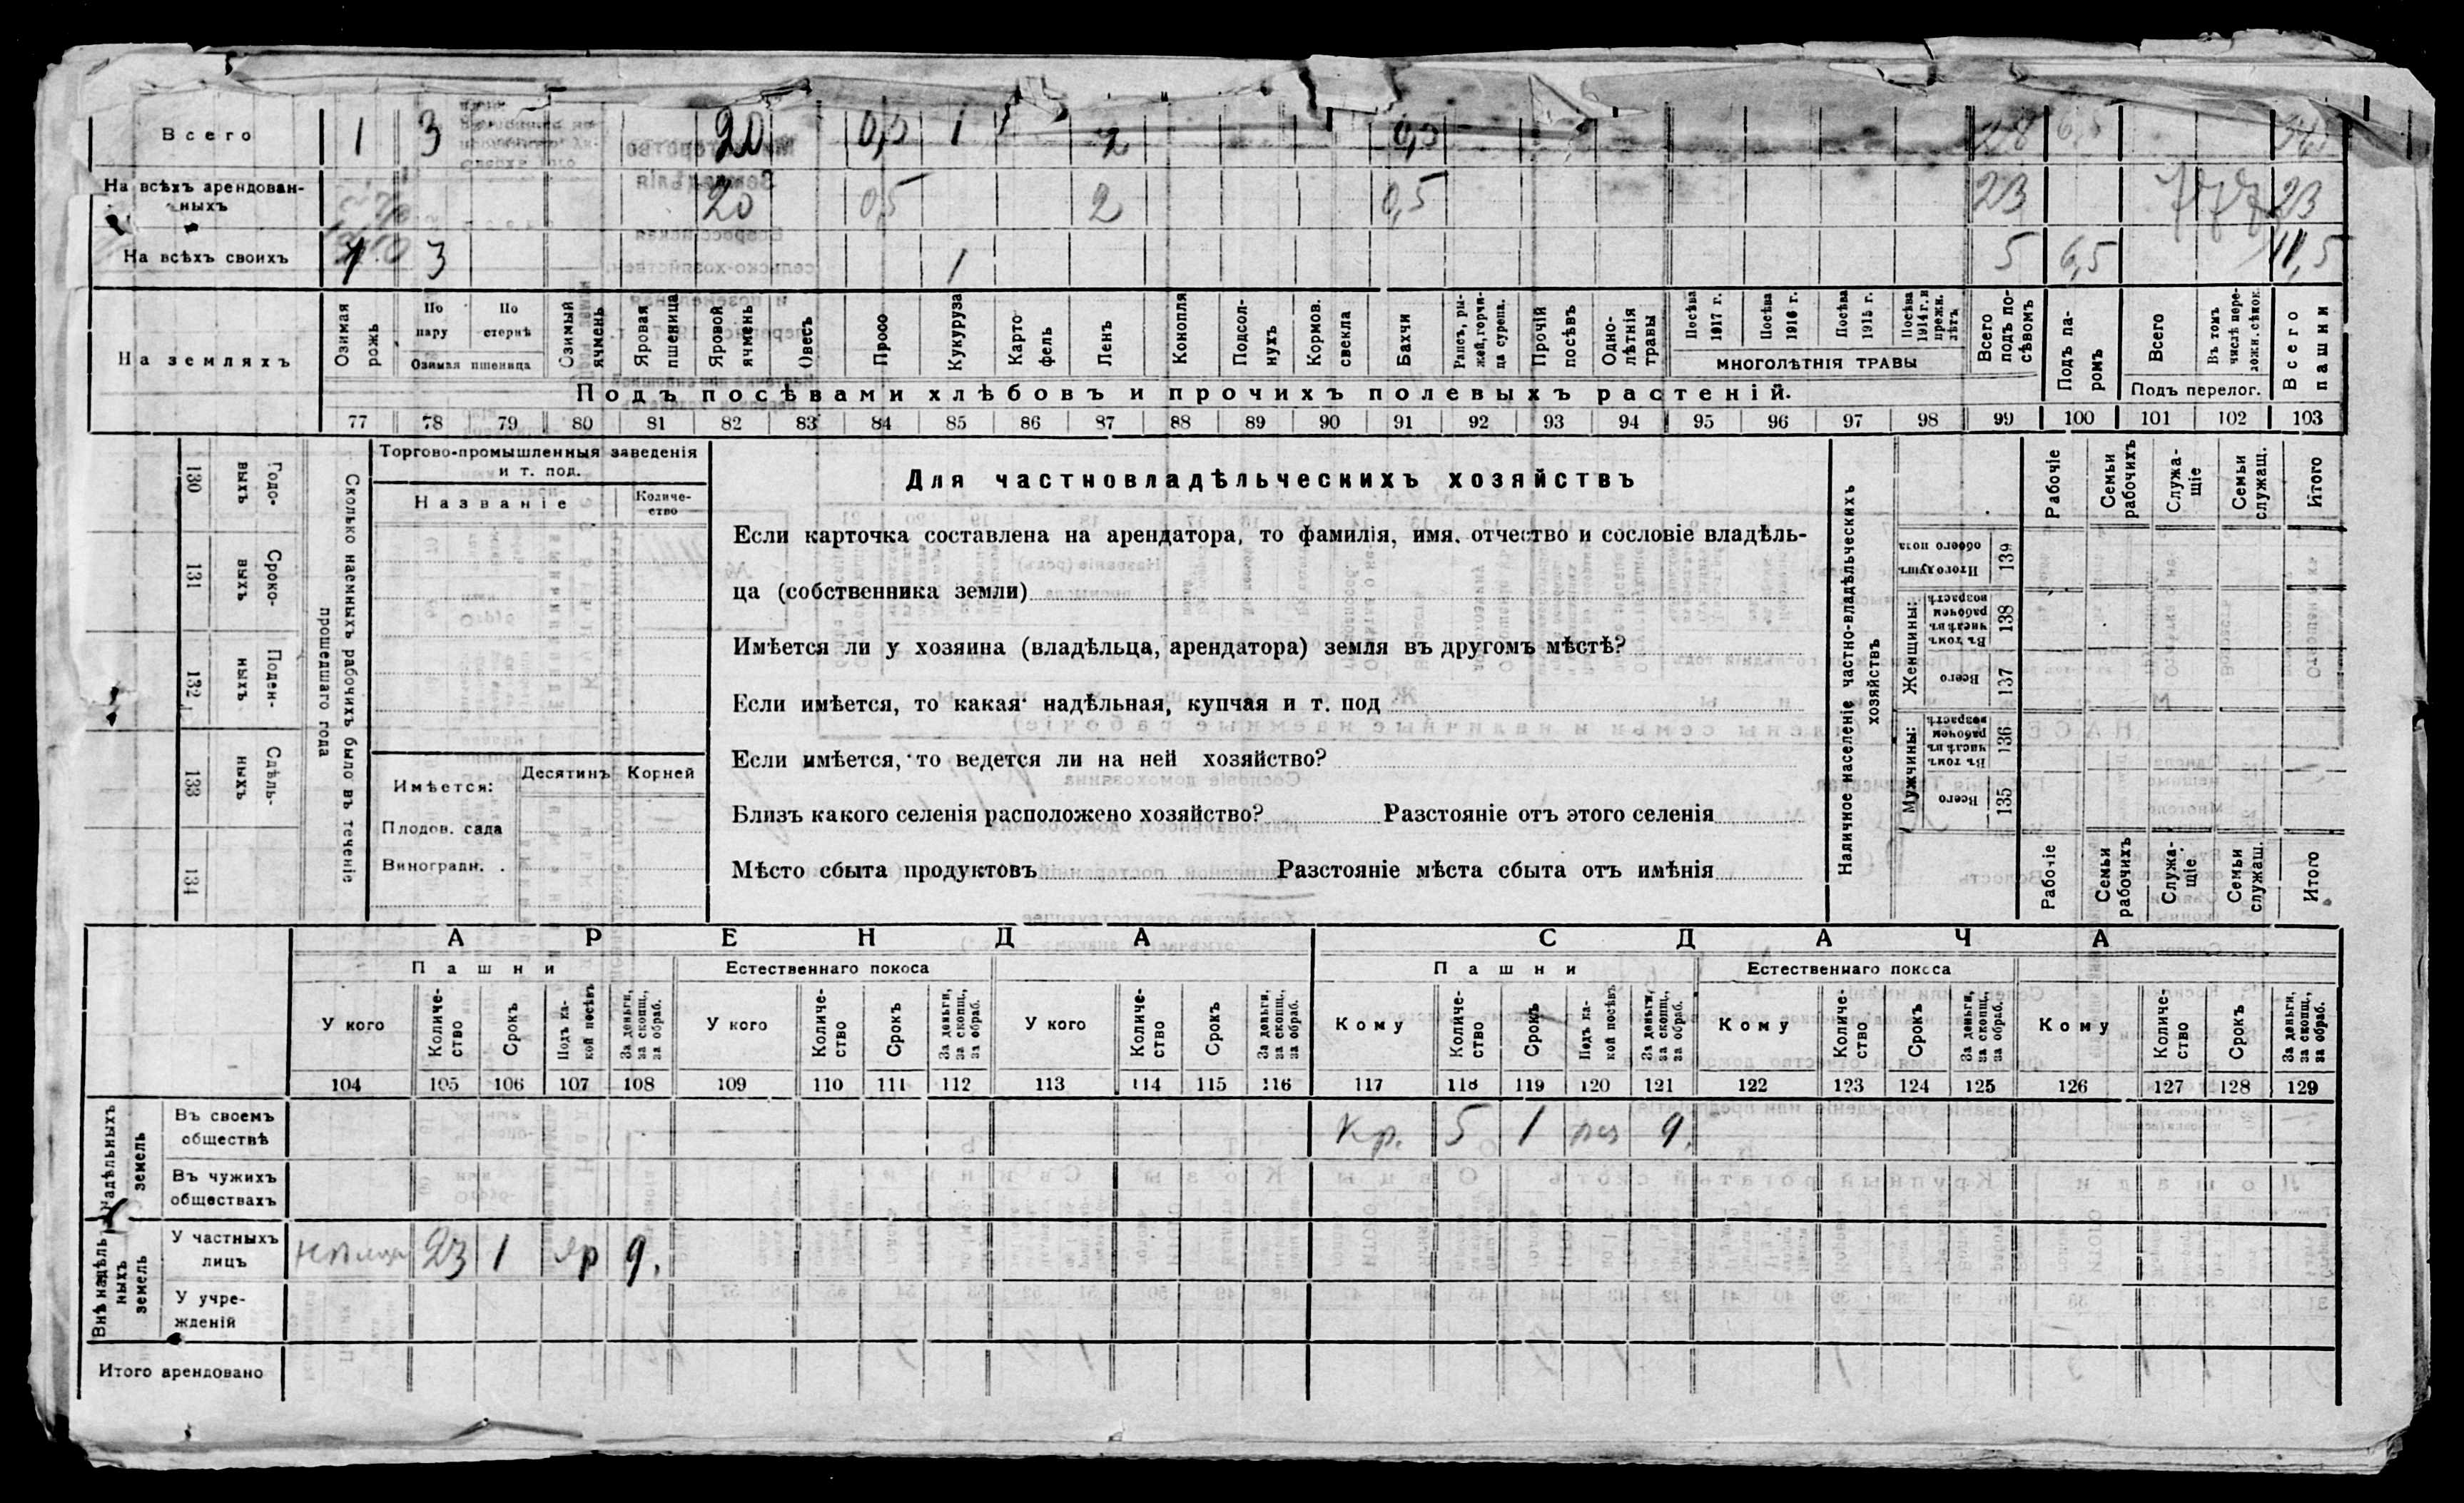 Всего 1 3 20 0,5 1 2 0,5 28 6,5 34,5
На всѣхъ арендован-
ныхъ 20 0,5 2 0,5 23 23
На всѣхъ своихъ 1 3 1 5 6,5 11,5
На земляхъ
Озимая рожь
По пару
По стернѣ
Озимая пшеница
Озимый ячмень
Яровая пшеница
Яровой ячмень
Овесъ
Просо
Кукуруза
Карто фель
Ленъ
Конопля
Подсол- нухъ
Кормов. свекла
Бахчи
Рапсъ, ры- жей, горчи- ца сурепа.
Прочій посѣвъ
Одно- лѣтнія травы
Посѣва 1917 г.
Посѣва 1916 г.
Посѣва 1915 г.
Посѣва 1914 г. и прежн. лѣтъ
МНОГОЛѢТНІЯ ТРАВЫ
Всего подъ по- сѣвомъ
Подъ па- ромъ
Всего
Въ томъ числѣ пере- ложн. сѣнок.
Подъ перелог.
Всего пашни
Подъ посѣвами хлѣбовъ и прочихъ полевыхъ растеній.
77 78 79 80 81 82 83 84 85 86 87 88 89 90 91 92 93 94 95 96 97 98 99 100 101 102 103
130 Годо- выхъ
131 Сроко- выхъ
132 Поден- ныхъ
133 Сдѣль- ныхъ
134
Сколько наемныхъ рабочихъ было въ теченіе
прошедшаго года
Торгово-промышленныя заведенія
и т. под.
Названіе
Количе-
ство
Имѣется:
Десятинъ Корней
Плодов. сада
Виноградн.
Для частновладѣльческихъ хозяйствъ
Если карточка составлена на арендатора, то фамилія, имя, отчество и сословіе владѣль-
ца (собственника земли)
Имѣется ли у хозяина (владѣльца, арендатора) земля въ другомъ мѣстѣ?
Если имѣется, то какая надѣльная, купчая и т. под
Если имѣется, то ведется ли на ней хозяйство?
Близъ какого селенія расположено хозяйство? Разстояніе отъ этого селенія
Мѣсто сбыта продуктовъ Разстояніе мѣста сбыта отъ имѣнія
Наличное населеніе частно-владѣльческихъ
хозяйствъ
Рабочіе
Семьи рабочихъ
Служа- щіе
Семьи служащ.
Итого
Итого душъ обоего пола 139
Женщины:
Въ томъ числѣ въ рабочем возрастѣ 138
Всего 137
Мужчины:
Въ томъ числѣ въ рабочем возрастѣ 136
Всего 135
Рабочіе
Семьи рабочихъ
Служа- щіе
Семьи служащ.
Итого
АРЕНДА
СДАЧА
Пашни Естественнаго покоса Пашни Естественнаго покоса
У кого
Количе- ство
Срокъ
Подъ ка- кой посѣвъ
За деньги, за скопщ., за обраб.
У кого
Количе- ство
Срокъ
За деньги, за скопщ., за обраб.
У кого
Количе- ство
Срокъ
За деньги, за скопщ., за обраб.
Кому
Количе- ство
Срокъ
Подъ ка- кой посѣвъ
За деньги, за скопщ., за обраб.
Кому
Количе- ство
Срокъ
За деньги, за скопщ., за обраб.
Кому
Количе- ство
Срокъ
За деньги, за скопщ., за обраб.
104 105 106 107 108 109 110 111 112 113 114 115 116 117 118 119 120 121 122 123 124 125 126 127 128 129
надѣльныхъ земель
Въ своемъ
обществѣ Кр. 5 1 9.
Въ чужихъ
обществахъ
Внѣ надѣль- ныхъ земель
У частныхъ
лицъ 23 1 яр 9.
У учре-
жденій
Итого арендовано